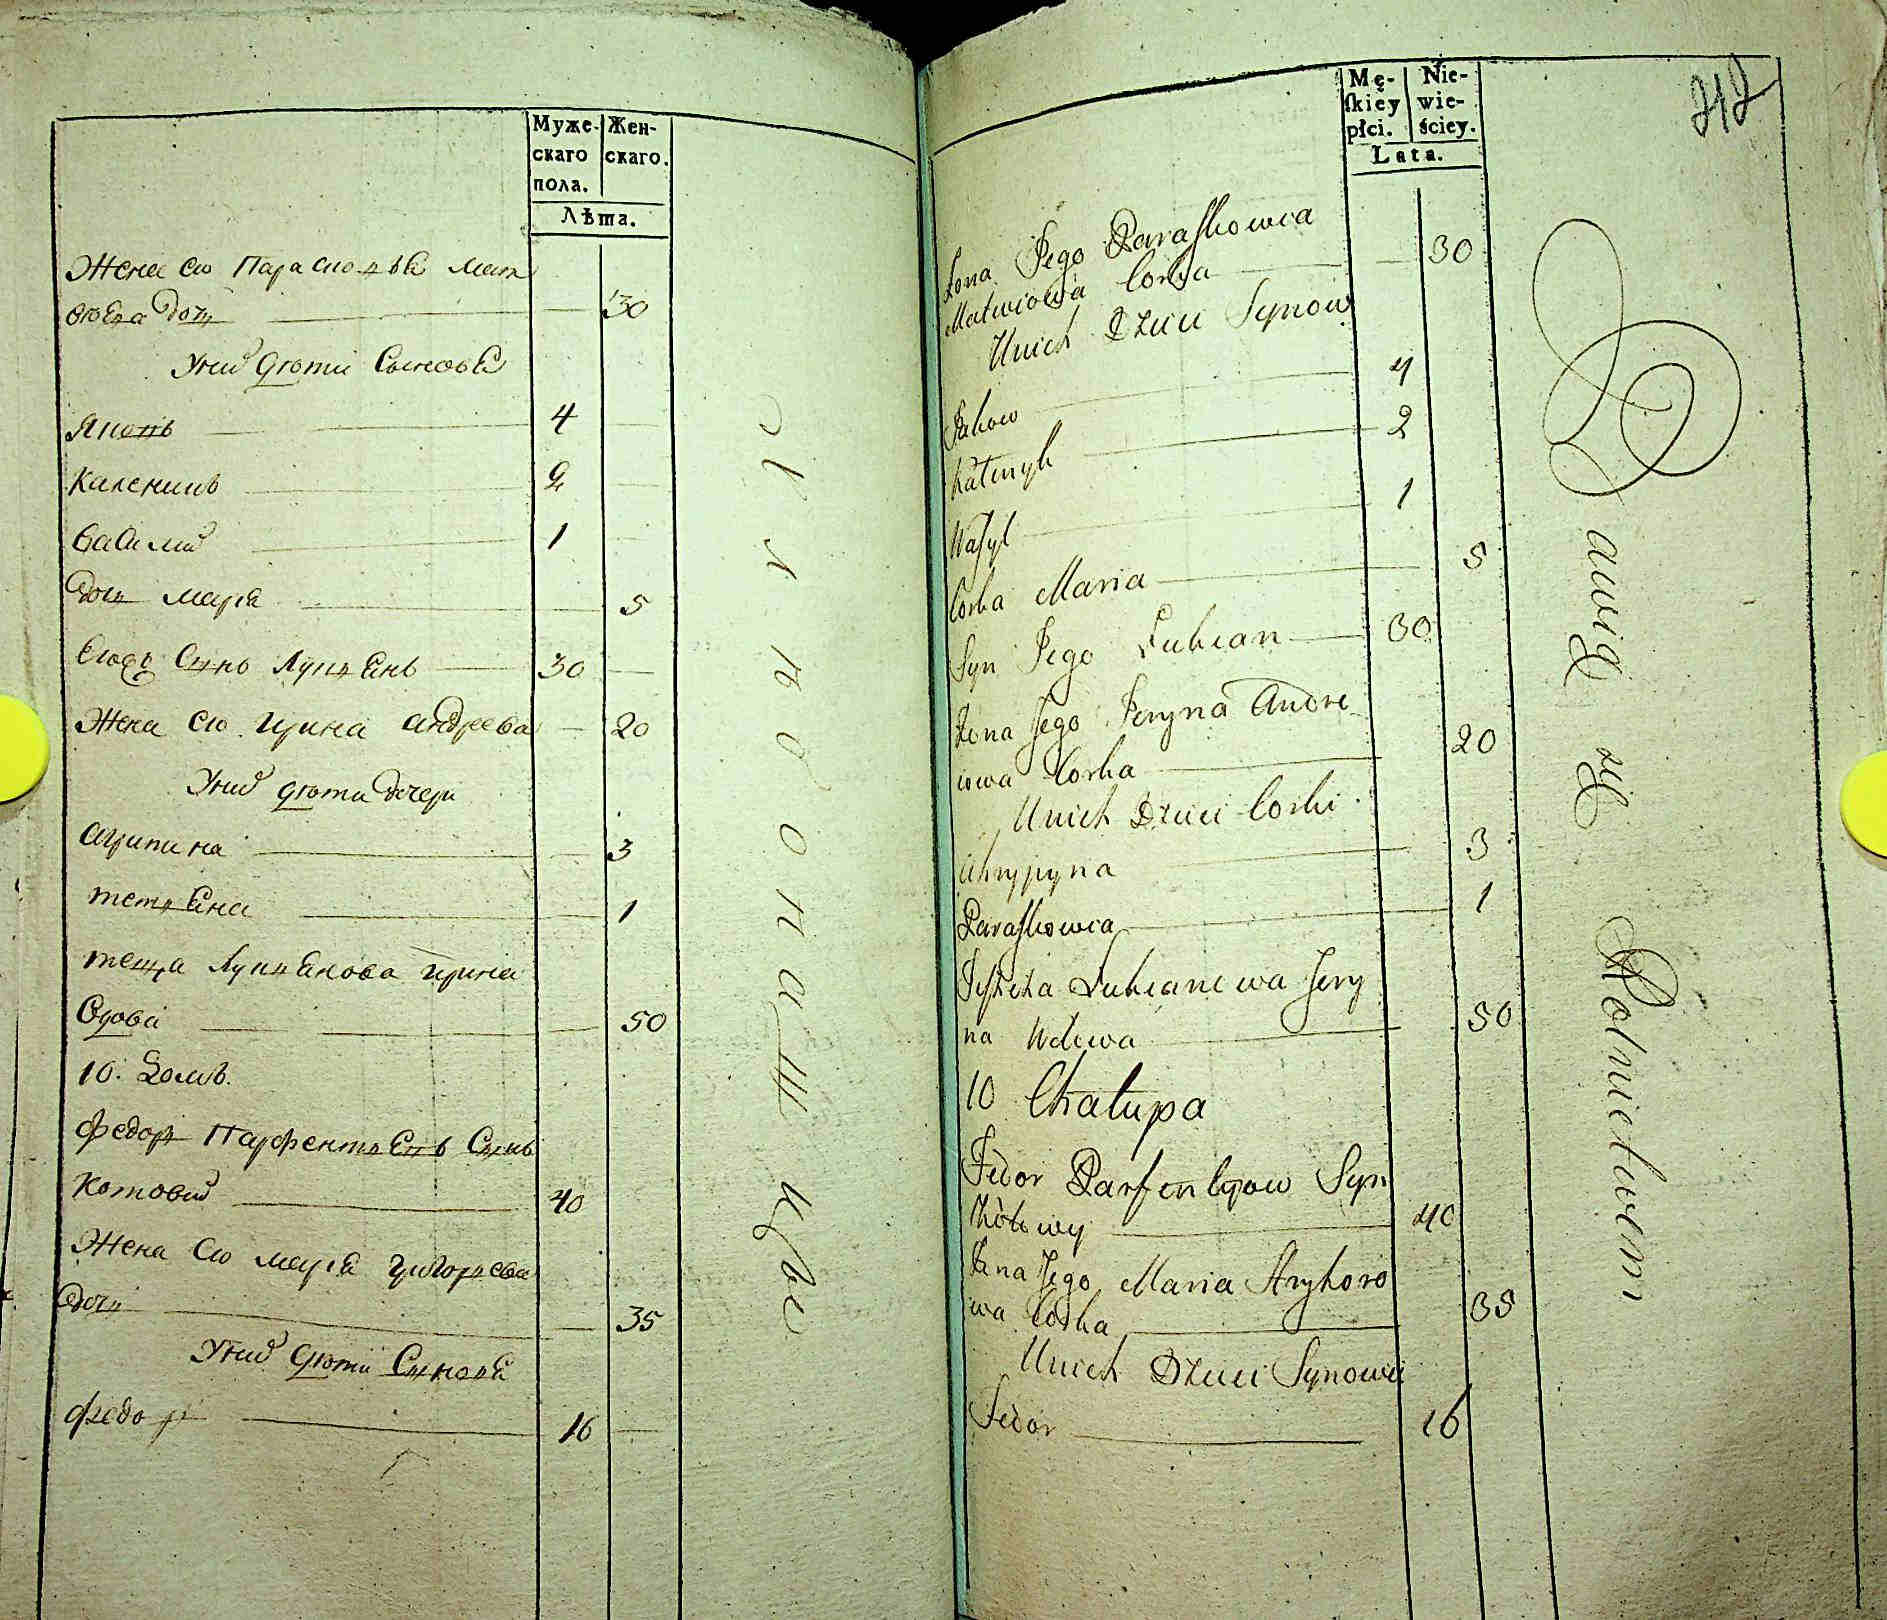 Муже-
скаго
пола.
Жен-
скаго.
Лѣта.
Жена ево Парасковья Мат
вѣева дочь 30
У них дѣти Сыновья
Яковъ 4
Каленикъ 2
Василий 1
дочь Марья 5
Сынъ Лукьянъ 30
Жена ево Ирина Андреева 20
У них дѣти дочери
Агрипина 3
1
теща Лукьянова Ирина
вдова 50
10. Домъ.
Федоръ Парфентьевъ Сынъ
Котовий 40
Жена ево Марья Григорьева
дочь 35
У них дѣти Сыновья
Федоръ 16
212
Mę-
ſkiey
płci.
Nie-
wie-
ściey.
Lata.
Zona Jego Paraſkowia
Matwiowa Corka 30
Unich Dzieci Synow
Jakow 4
Kalenyk 2
Waſyl 1
Corka Maria 5
Syn Jego Lukian 30
Zona Jego Jeryna Andre
iowa Corka 20
Unich Dzieci Corki
Ahrypyna 3
Paraſkowia 1
Teſzcza Lukianowa Jery
na Wdowa 50
10 Chałupa
Fedor Parfentyow Syn
Kotowy 40
Zona Jego Maria Hryhoro
wa Corka 35
Unich Dzieci Synowie
Fedor 16
Dawid